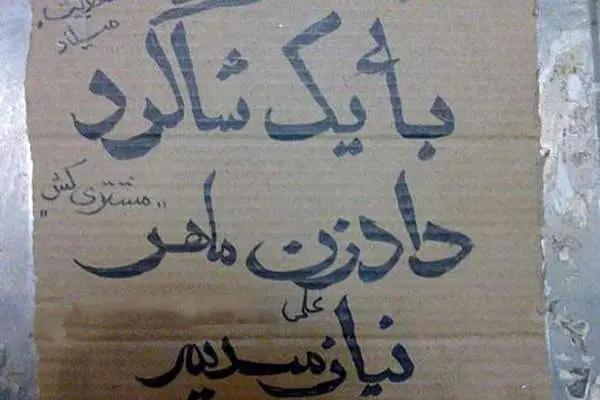 میلاد
به یک شاگرد
"مشتری کش"
دادزن ماهر
علی
نیازمندیم